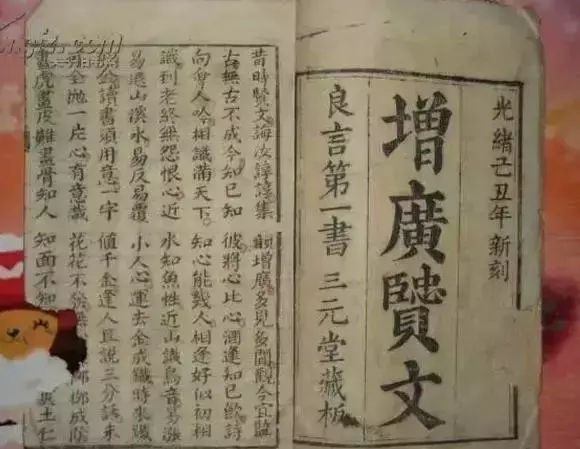 光緒己丑年新刻
增廣賢文
良言第一書 三元堂藏板
昔時賢文誨汝諄諄集 韻增廣多見多聞觀今宜鑒
古無古不成今知已知 彼將心比心酒逢知己飲詩
向會人吟相識滿天下 知心能幾人相逢好似初相
識到老終無怨恨心近 水知魚性近山識鳥音易漲
易退山溪水易反易覆 小人心運去金成鐵時來鐵
讀書須用意一字 值千金逢人且說三分話未
全拋一片心有意栽 花花不發無柳成陰
畫虎畫皮難畫骨知人 知面不知土仁